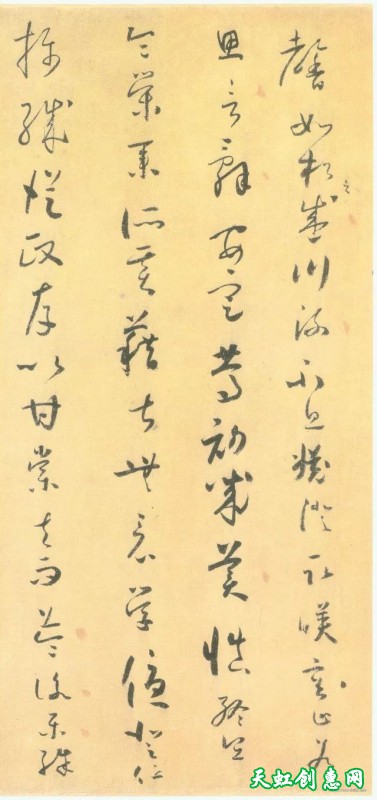 馨如松之盛川流不息淵澄取暎容止若
思言辭安定篤初誠美慎終宜
令榮業所基藉甚無竟學優登仕
攝職從政存以甘棠去而益詠樂殊
天虹创惠网